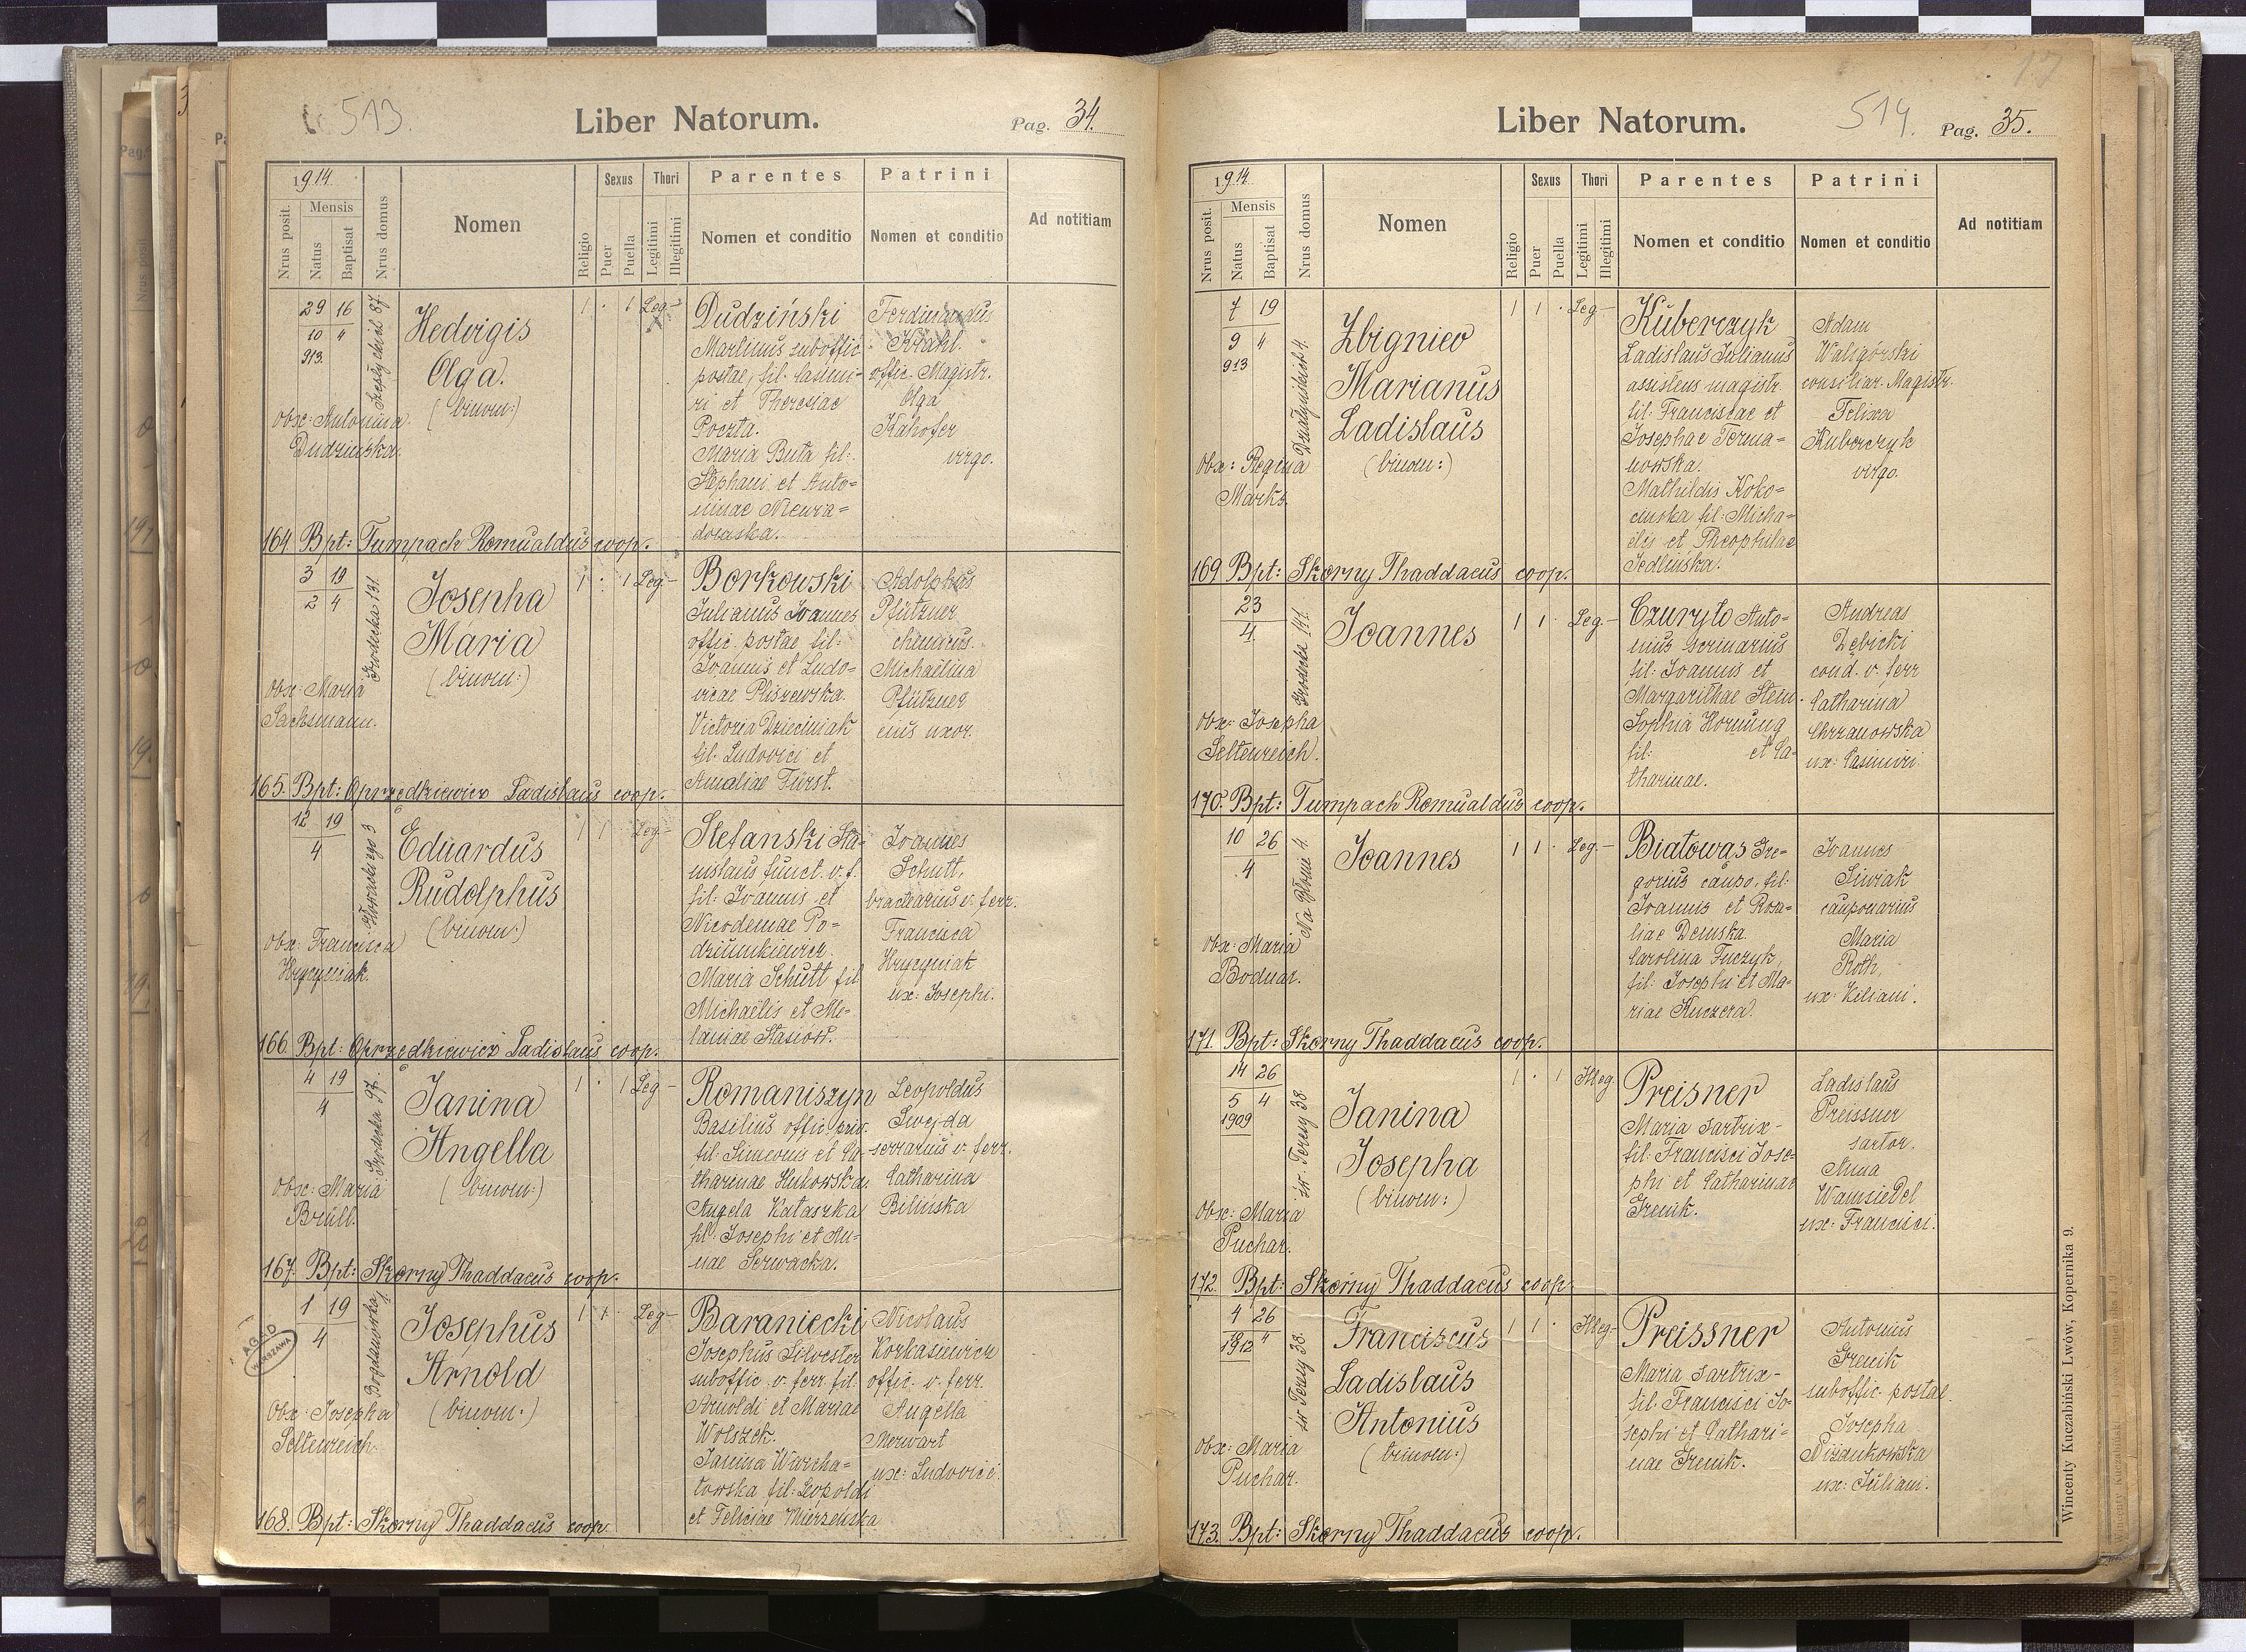 513.
Liber Natorum.
Pag. 34.
1914
Nrus posit.
Mensis
Natus
Baptisat
Nrus domus
Nomen
Religio
Sexus
Puer
Puella
Thori
Legitimi
Illegitimi
Parentes
Nomen et conditio
Patrini
Nomen et conditio
Ad notitiam
29 16
10 4
913.
Hedvigis
Olga.
(binom:)
Obx: Antonina
Dudzińska.
1 . 1 Leg-
Dudziński
Martinus suboffic
postae, fil. Casimi-
ri et Theresiae
Poczta.
Maria Buta fil:
Stephani et Anto=
ninae
Ferdinandus
Krahl.
offic. Magistr.
Olga
Kahofer
virgo.
164 Bpt: Tumpach Romualdus coop.
3 19
2 4
Grodecka 131.
Josepha
Maria
(binom:)
Obx: Maria
Sachsmann.
1 . 1 Leg-
Borkowski
Julianus Joannes
offic. postae fil:
Joannis et Ludo=
vicae Pliszewska.
Victoria Dzieciniak
fil. Ludovici et
Amaliae Fürst.
Adolphus
Pfützner
Michaëlina
Pfützner
eius uxor.
165. Bpt: Oprzędkiewicz Ladislaus coop.
12 19
4
Eduardus
Rudolphus
(binom:)
Obx: Francisca
Hrycyniak.
1 1 . Leg-
Stefanski Sta=
nislaus funct. v. f.
fil. Joannis et
Nicodemae Po=
dziunkiewicz.
Maria Schutt fil
Michaëlis et Me=
laniae Stasiów.
Joannes
Schutt,
bractearius v. ferr.
Francisca
Hrycyniak
ux: Josephi.
166 Bpt: Oprzędkiewicz Ladislaus coop.
4 19
4
Grodecka 97.
Janina
Angella
(binom:)
Obx: Maria
Brüll.
1 . 1 Leg-
Romaniszyn
Basilius offic. priv.
fil. Simeonis et Ca-
tharinae Hukowska.
Angela Kataszka
fil. Josephi et An-
nae Serwacka.
Leopoldus
Swoyda
serrarius v. ferr.
Catharina
Bilińska
167. Bpt: Skorny Thaddaeus coop.
1 19
4
Bogdanowska 1.
Josephus
Arnold
(binom:)
Obx: Josepha
Seltenreich.
1 1 . Leg-
Baraniecki
Josephus Silvester
suboffic v. ferr. fil.
Arnoldi et Mariae
Wolszek.
Janina Warcha=
łowska fil. Leopoldi
et Feliciae Mierzeńska
Nicolaus
Korkasiewicz
offic. v. ferr.
Angella
Merwart
ux: Ludovici.
168. Bpt: Skorny Thaddaeus coop.
AGAD
WARSZAWA
514.
Liber Natorum.
Pag. 35.
1914
Nrus posit.
Mensis
Natus
Baptisat
Nrus domus
Nomen
Religio
Sexus
Puer
Puella
Thori
Legitimi
Illegitimi
Parentes
Nomen et conditio
Patrini
Nomen et conditio
Ad notitiam
7 19
9 4
913
Zbigniew
Marianus
Ladislaus
(binom:)
Obx: Regina
Marks.
1 1 . Leg-
Kuberczyk
Ladislaus Julianus
assistens magistr.
fil. Franciscae et
Josephae Terma=
nowska.
Mathildis Koko=
cińska fil. Micha=
ëlis et Theophilae
Jedlińska.
Adam
Waligórski
consiliar. Magistr.
Felixa
Kuberczyk
virgo.
169 Bpt: Skorny Thaddaeus coop.
23
4.
Grodecka 141.
Joannes
Obx: Josepha
Seltenreich.
1 1 . Leg-
Czuryło Anto=
nius scriniarius
fil. Joannis et
Margarithae Stein.
Sophia Hornung
fil: et Ca-
tharinae.
Andreas
Zębicki
cond. v. ferr
Catharina
Chrzanowska
ux: Casimiri.
170. Bpt: Tumpach Romualdus coop.
10 26
4
Na Błonie 4.
Joannes
Obx: Maria
Bodnar.
1 1 . Leg-
Białowąs Gre-
gorius caupo. fil:
Joannis et Rosa=
liae Demska.
Carolina Fuczyk,
fil: Josephi et Ma-
riae Kuczera.
Joannes
Siwiak
cauponarius
Maria
Roth,
ux: Kiliani.
171. Bpt: Skorny Thaddaeus coop.
14 26
5 4
1909
św. Teresy 38
Janina
Josepha
(binom:)
Obx: Maria
Puchar.
1 . 1 Illeg.
Preisner
Maria sartrix-
fil. Francisci Jose-
phi et Catharinae
Grenik.
Ladislaus
Preissner
sartor.
Anna
Wansiedel
ux: Francisci.
172. Bpt: Skorny Thaddaeus coop.
4 26
10 4
1912
św Teresy 38.
Franciscus
Ladislaus
Antonius
(trinom:)
Obx: Maria
Puchar.
1 1 . Illeg-
Preissner
Maria sartrix-
fil. Francisci Jo-
sephi et Cathari=
nae Grenik.
Antonius
Grenik
suboffic. postae.
Josepha
Niżankowska
ux: Juliani.
173. Bpt: Skorny Thaddaeus coop.
Wincenty Kuczabiński Lwów, Kopernika 9.